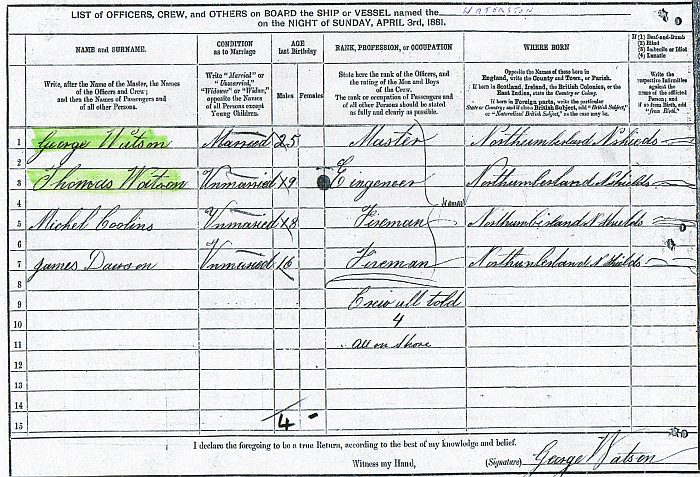 LIST of OFFICERS, CREW, and OTHERS on BOARD the SHIP or VESSEL named the WATERSTON
on the NIGHT of SUNDAY, APRIL 3rd, 1881.
NAME and SURNAME.
Write, after the Name of the Master, the Names
of the Officers and Crew;
and then the Names of Passengers and
of all other Persons.
CONDITION
as to Marriage
Write "Married" or
"Unmarried,"
"Widower" or "Widow,"
opposite the Names
of all Persons except
Young Children.
AGE
last Birthday
Males Females
RANK, PROFESSION, or OCCUPATION
State here the rank of the Officers, and
the rating of the Men and Boys
of the Crew.
The rank or occupation of Passengers and
of all other Persons should be stated
as fully and clearly as possible.
WHERE BORN
Opposite the Names of those born in
England, write the County and Town, or Parish.
If born in Scotland, Ireland, the British Colonies, or the
East Indies, state the Country or Colony.
If born in Foreign parts, write the particular
State or Country; and if also a British Subject, add "British Subject,"
or "Naturalized British Subject," as the case may be.
If (1) Deaf-and-Dumb
(2) Blind
(3) Imbecile or Idiot
(4) Lunatic
Write the
respective Infirmities
against the
name of the afflicted
Person; and
if so from Birth, add
"from Birth."
1 George Watson Married 25 Master Northumberland N shields
2
3 Thomas Watson Unmarried 19 Eingeneer Northumberland N Shields
4
5 Michel Coolins Unmaried 18 Fireman Northumberland N Shields
6
7 James Dawson Unmaried 16 Fireman Northumberland N Shields
8
9 Crew all told
10 4
11 all on Shore
12
13
14
15 4 -
I declare the foregoing to be a true Return, according to the best of my knowledge and belief.
Witness my Hand, (Signature) George Watson